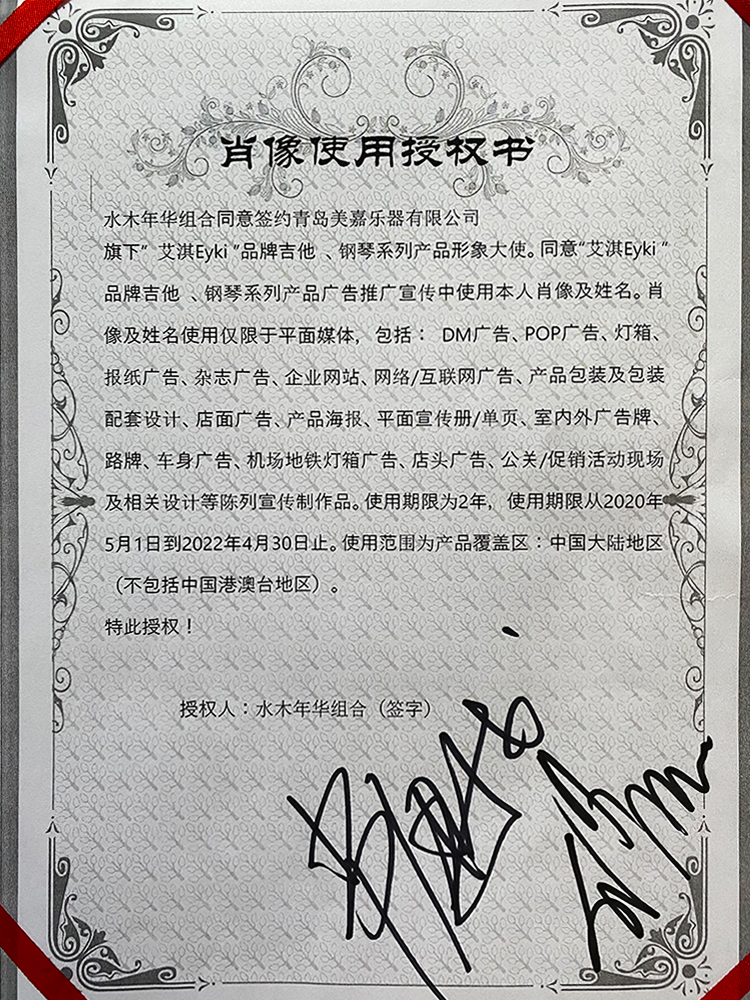 肖像使用授权书
水木年华组合同意签约青岛美嘉乐器有限公司
旗下” 艾淇Eyki ”品牌吉他 、钢琴系列产品形象大使。同意“艾淇Eyki “
品牌吉他 、钢琴系列产品广告推广宣传中使用本人肖像及姓名。肖
像及姓名使用仅限于平面媒体，包括： DM广告、POP广告、灯箱、
报纸广告、杂志广告、企业网站、网络/互联网广告、产品包装及包装
配套设计、店面广告、产品海报、平面宣传册/单页、室内外广告牌、
路牌、车身广告、机场地铁灯箱广告、店头广告、公关/促销活动现场
及相关设计等陈列宣传制作品。使用期限为2年，使用期限从2020年
5月1日到2022年4月30日止。使用范围为产品覆盖区：中国大陆地区
（不包括中国港澳台地区）。
特此授权！
授权人：水木年华组合（签字）